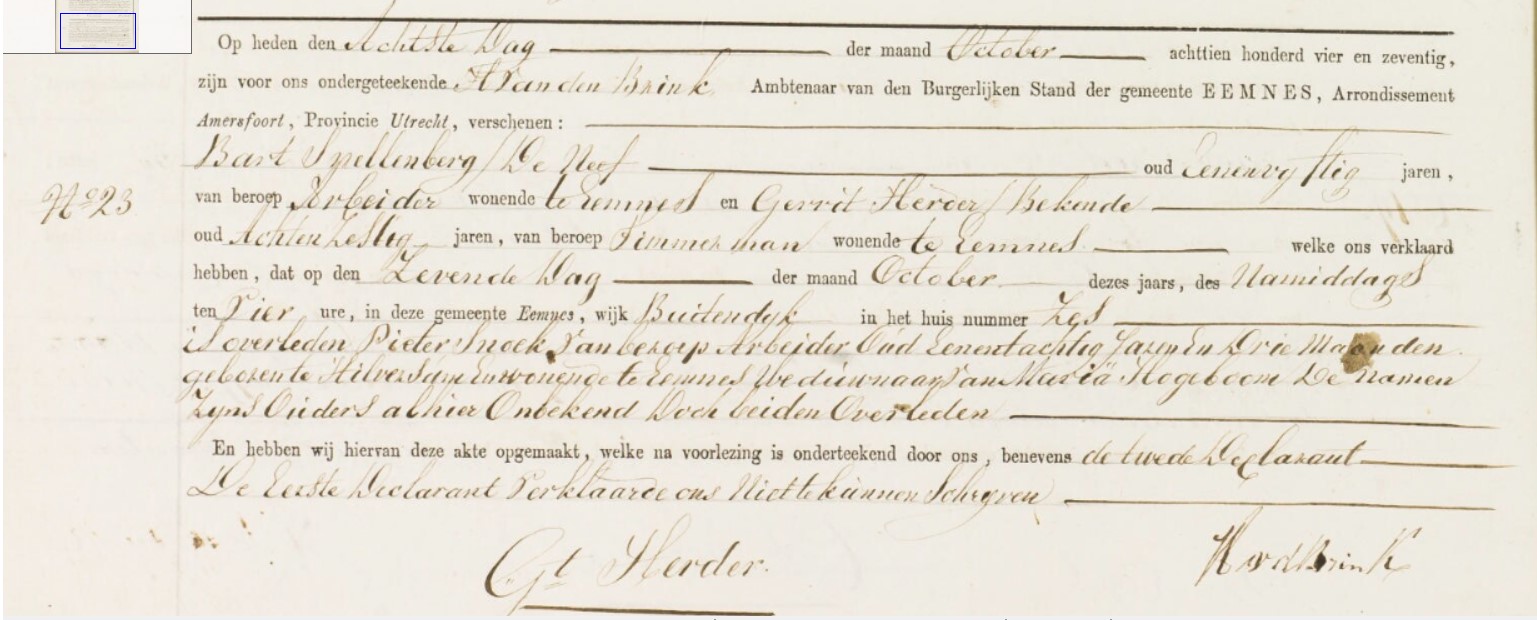 Op heden den Achtste Dag der maand October achttien honderd vier en zeventig,
zijn voor ons ondergeteekende H Van den Brink Ambtenaar van den Burgerlijken Stand der gemeente EEMNES, Arrondissement
Amersfoort, Provincie Utrecht, verschenen:
Bart Spellenberg / De Neef oud Eenenvyftig jaren,
No 23
van beroep Arbeider wonende te Eemnes en Gerrit Herder / Bekende
oud Achtenzestig jaren, van beroep Timmerman wonende te Eemnes welke ons verklaard
hebben, dat op den Zevende Dag der maand October dezes jaars, des Namiddags
ten Vier ure, in deze gemeente Eemnes, wijk Buitendyk in het huis nummer Zes
is overleden Pieter Snoek Van beroep Arbeider Oud Eenentachtig Jaren En Drie Maanden
geboren te Hilversum En wonende te Eemnes Weduwnaar Van Maria Hogeboom De Namen
Zyns Ouders alhier Onbekend Doch beiden Overleden
En hebben wij hiervan deze akte opgemaakt, welke na voorlezing is onderteekend door ons, benevens de twede Declarant
De Eerste Declarant Verklaarde ons Niet te kunnen Schryven
Gt Herder. H vd Brink